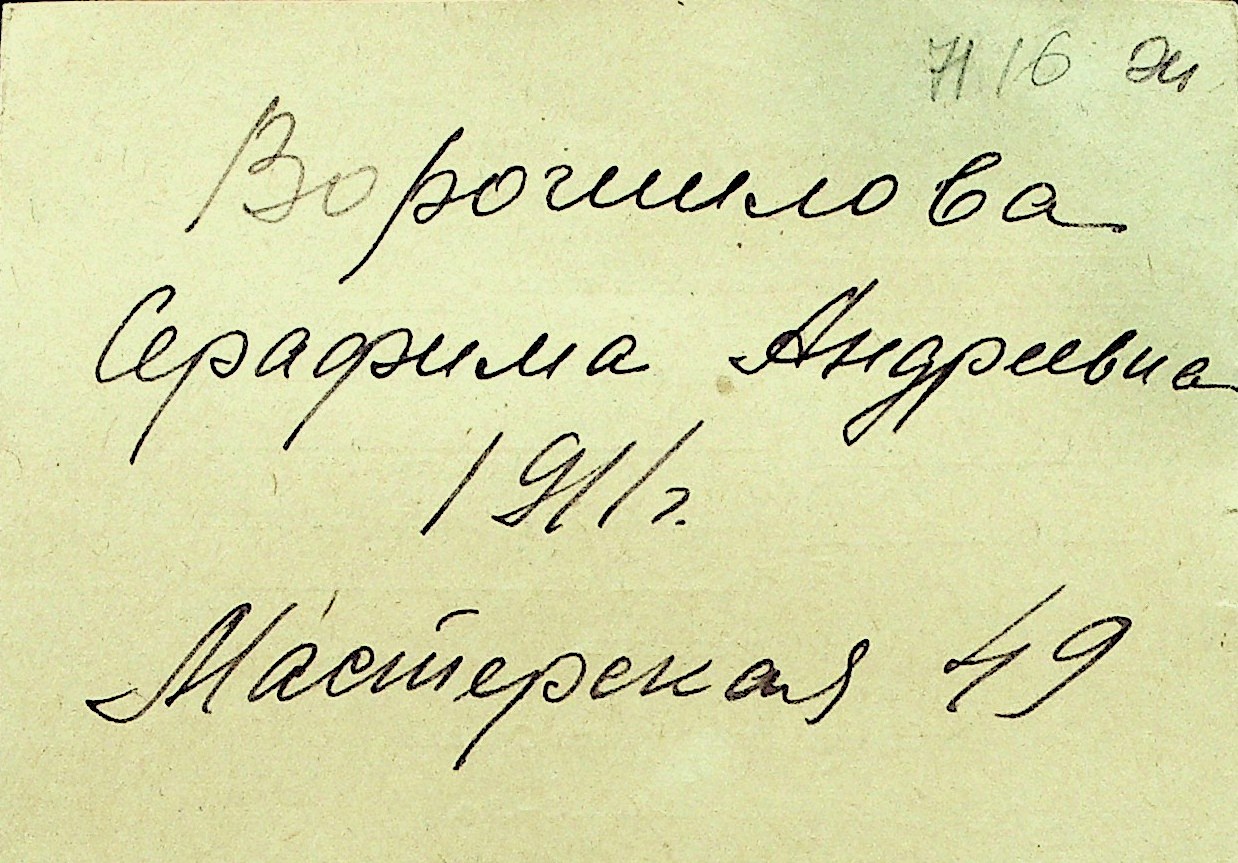 7116
Ворошилова
Серафима Андреевна
1911г.
Мастерская 49